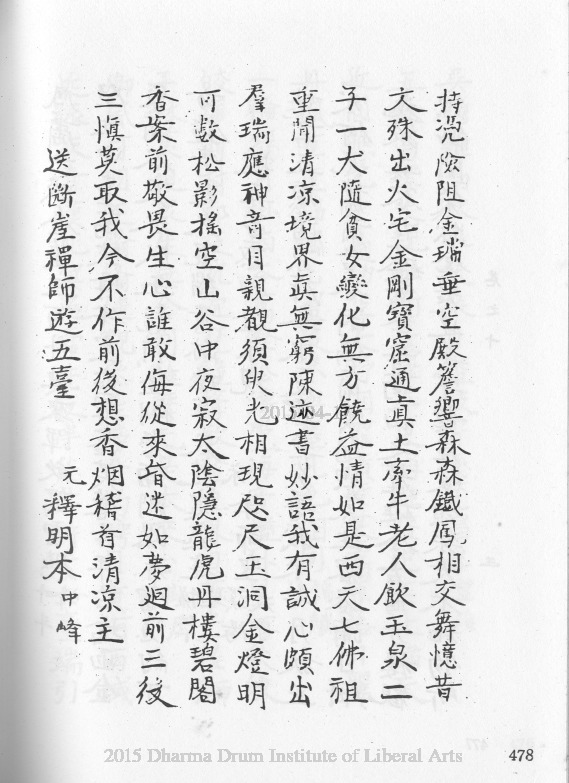 持凴險阻金瑞垂空殿簷響森森鐵鳳相交舞憶昔
文殊出火宅金剛寶窟通真土牽牛老人飲玉泉二
子一犬隨貧女變化無方饒益情如是西天七佛祖
重聞清凉境界真無窮陳迹書妙語我有誠心頗出
羣瑞應神奇目親覩須臾光相現咫尺玉洞金燈明
可數松影搖空山谷中夜寂太陰隱龍虎丹樓碧閣
香案前敬畏生心誰敢侮從來昏迷如夢迴前三後
三慎莫取我今不作前後想香烟稽首清凉主
送斷崖禪師遊五臺 元釋明本中峰
2015 Dharma Drum Institute of Liberal Arts
478